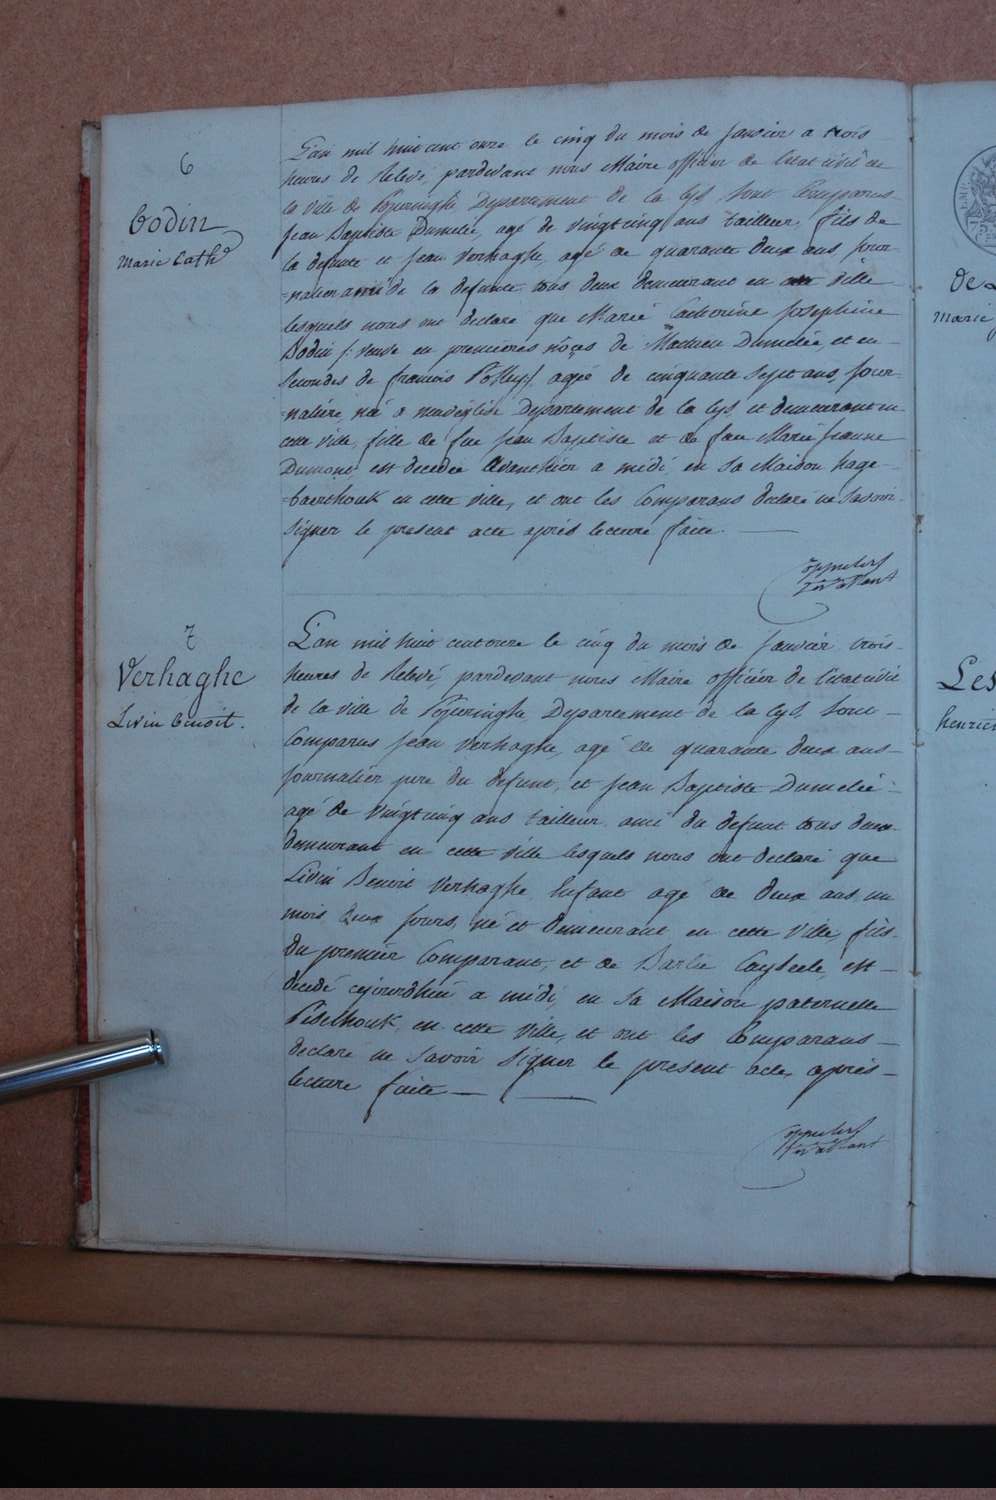 6
Bodin
Marie Cath.
L'an mil huit cent onze le cinq du mois de Janvier a trois
heures de relevé, pardevant nous Maire officier de l'état civil de
la ville de Poperinghe Departement de la Lys sont Comparus
Jean Baptiste Dumelié, agé de vingt cinq ans tailleur, fils de
la defunte et Jean Verhaghe, agé de quarante deux ans, jour
=nalier ami de la defunte tous deux demeurant en cette ville
lesquels nous ont declaré que Marie Catherine Josephine
Bodin /: veuve en premieres nôces de Mathieu Dumelié, et en
secondes de francois :/ agée de cinquante sept ans, jour
=naliere né a neuvéglise Departement de la Lys, et demeurant en
cette ville, fille de feu Jean Baptiste et de feu Marie Jeanne
Dumont est decedée avanthier a midi, en sa Maison hage-
=baerthouk en cette ville, et ont les Comparans declaré ne savoir
signer le present acte après lecture faite.
7
Verhaghe
Livin benoit.
L'an mil huit cent onze le cinq du mois de Janvier trois
heures de relevé, pardevant nous Maire officier de l'état civil
de la ville de Poperinghe Departement de la Lys, sont
Comparus Jean Verhaghe, agé de quarante deux ans
journalier pere du defunt, et Jean Baptiste Dumelié
agé de vingt cinq ans tailleur ami du defunt tous deux
demeurant en cette ville lesquels nous ont declaré que
Livin Benoit Verhaghe Enfant agé de deux ans un
mois deux jours, né et demeurant en cette ville, fils
du premier Comparant, et de Barbe est
decedé cejourdhui a midi, en sa Maison paternelle
Peselhouk, en cette ville, et ont les Comparans
declaré ne savoir signer le present acte, après
lecture faite
de
Marie
Les
henri